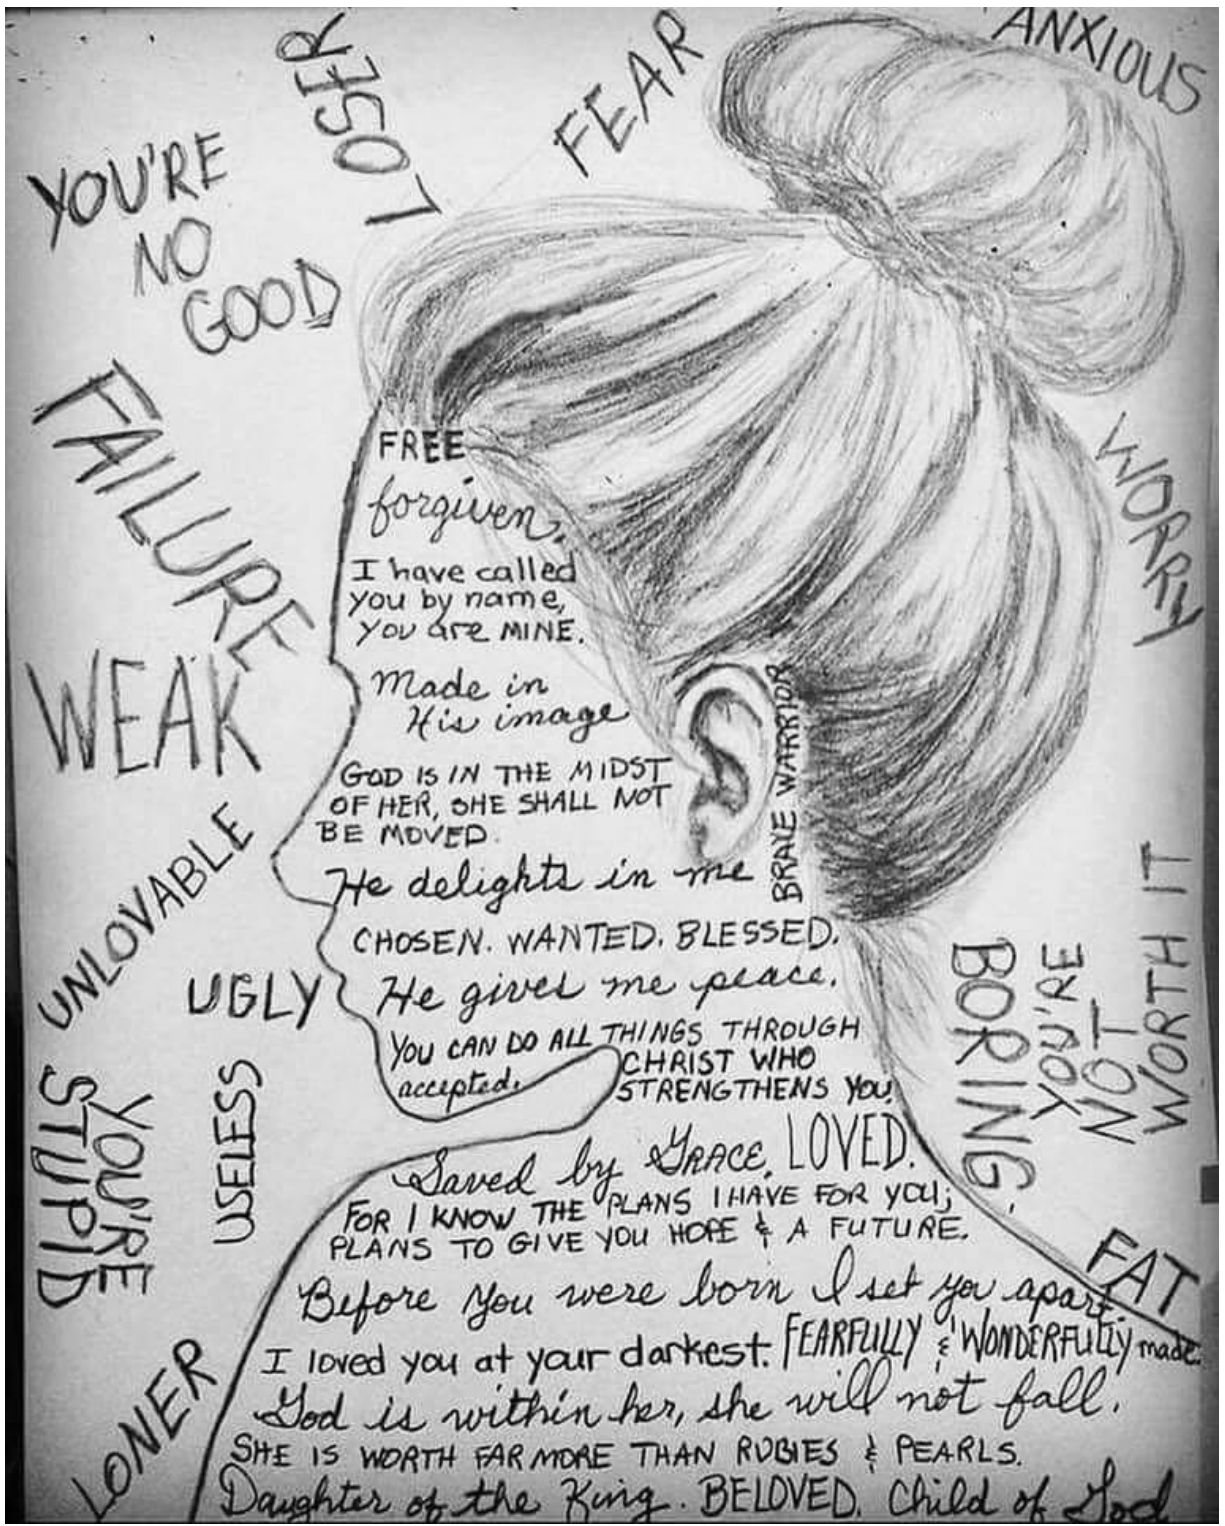 ANXIOUS
FEAR
LOSER
YOU'RE
NO
GOOD
FAILURE
WEAK
UNLOVABLE
UGLY
YOU'RE
STUPID
USELESS
LONER
WORRY
YOU'RE
NOT
WORTH IT
BORING.
FAT
FREE
forgiven.
I have called
you by name,
you are MINE.
Made in
His image
GOD IS IN THE MIDST
OF HER, SHE SHALL NOT
BE MOVED.
BRAVE WARRIOR
He delights in me
CHOSEN. WANTED. BLESSED.
He gives me peace.
YOU CAN DO ALL THINGS THROUGH
CHRIST WHO
STRENGTHENS YOU.
accepted.
Saved by GRACE. LOVED.
FOR I KNOW THE PLANS I HAVE FOR YOU;
PLANS TO GIVE YOU HOPE & A FUTURE.
Before you were born I set you apart
I loved you at your darkest. FEARFULLY & WONDERFULLY made.
God is within her, she will not fall.
SHE IS WORTH FAR MORE THAN RUBIES & PEARLS.
Daughter of the King. BELOVED. Child of God